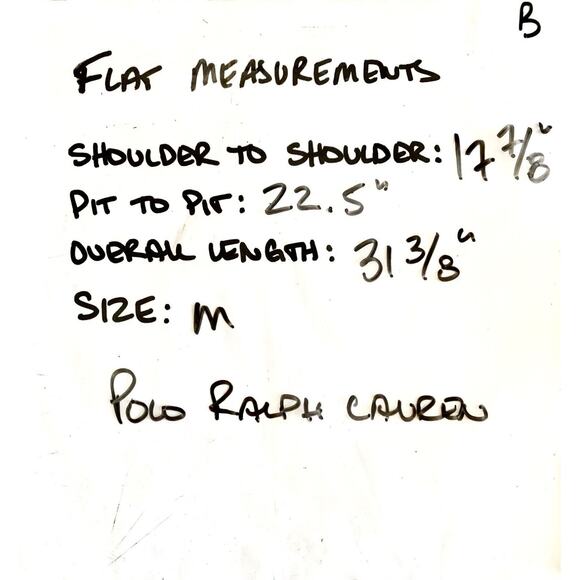 B
FLAT MEASUREMENTS
SHOULDER TO SHOULDER: 17 7/8"
PIT TO PIT: 22.5"
OVERALL LENGTH: 31 3/8"
SIZE: M
POLO RALPH LAUREN